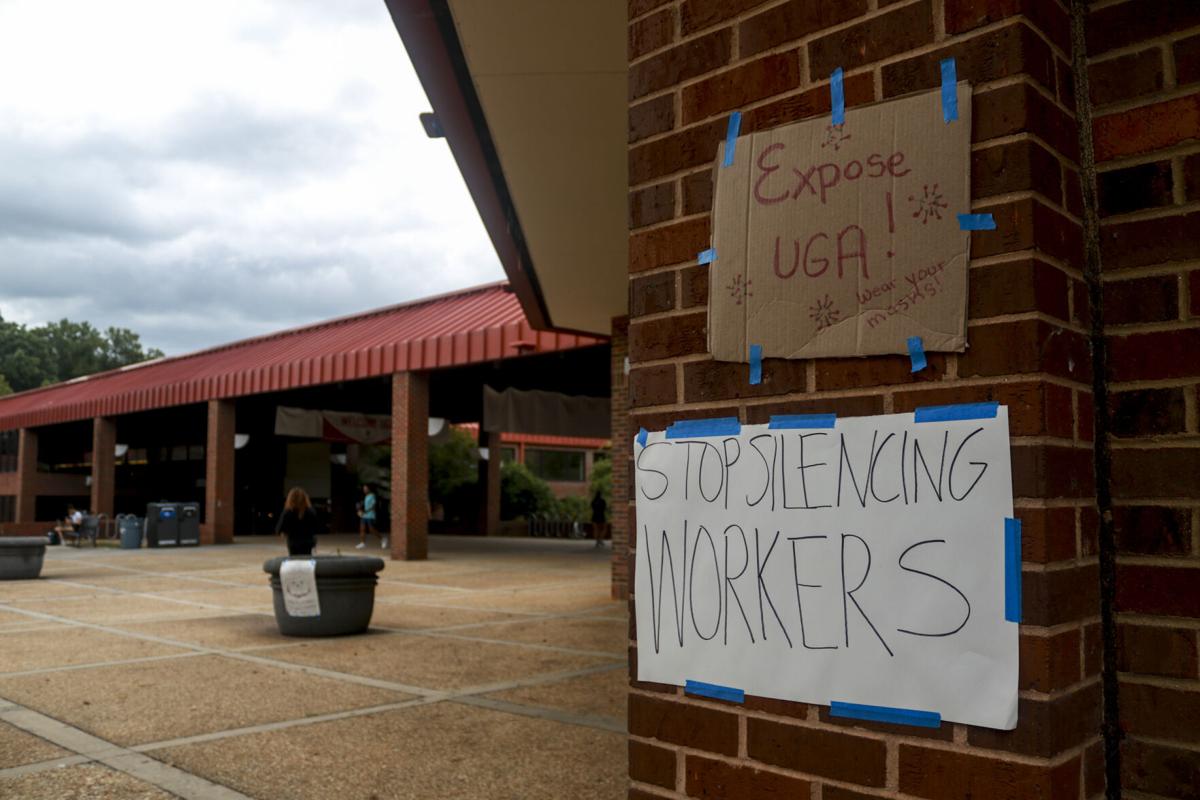 Expose
UGA!
wear your
masks!
STOP SILENCING
WORKERS